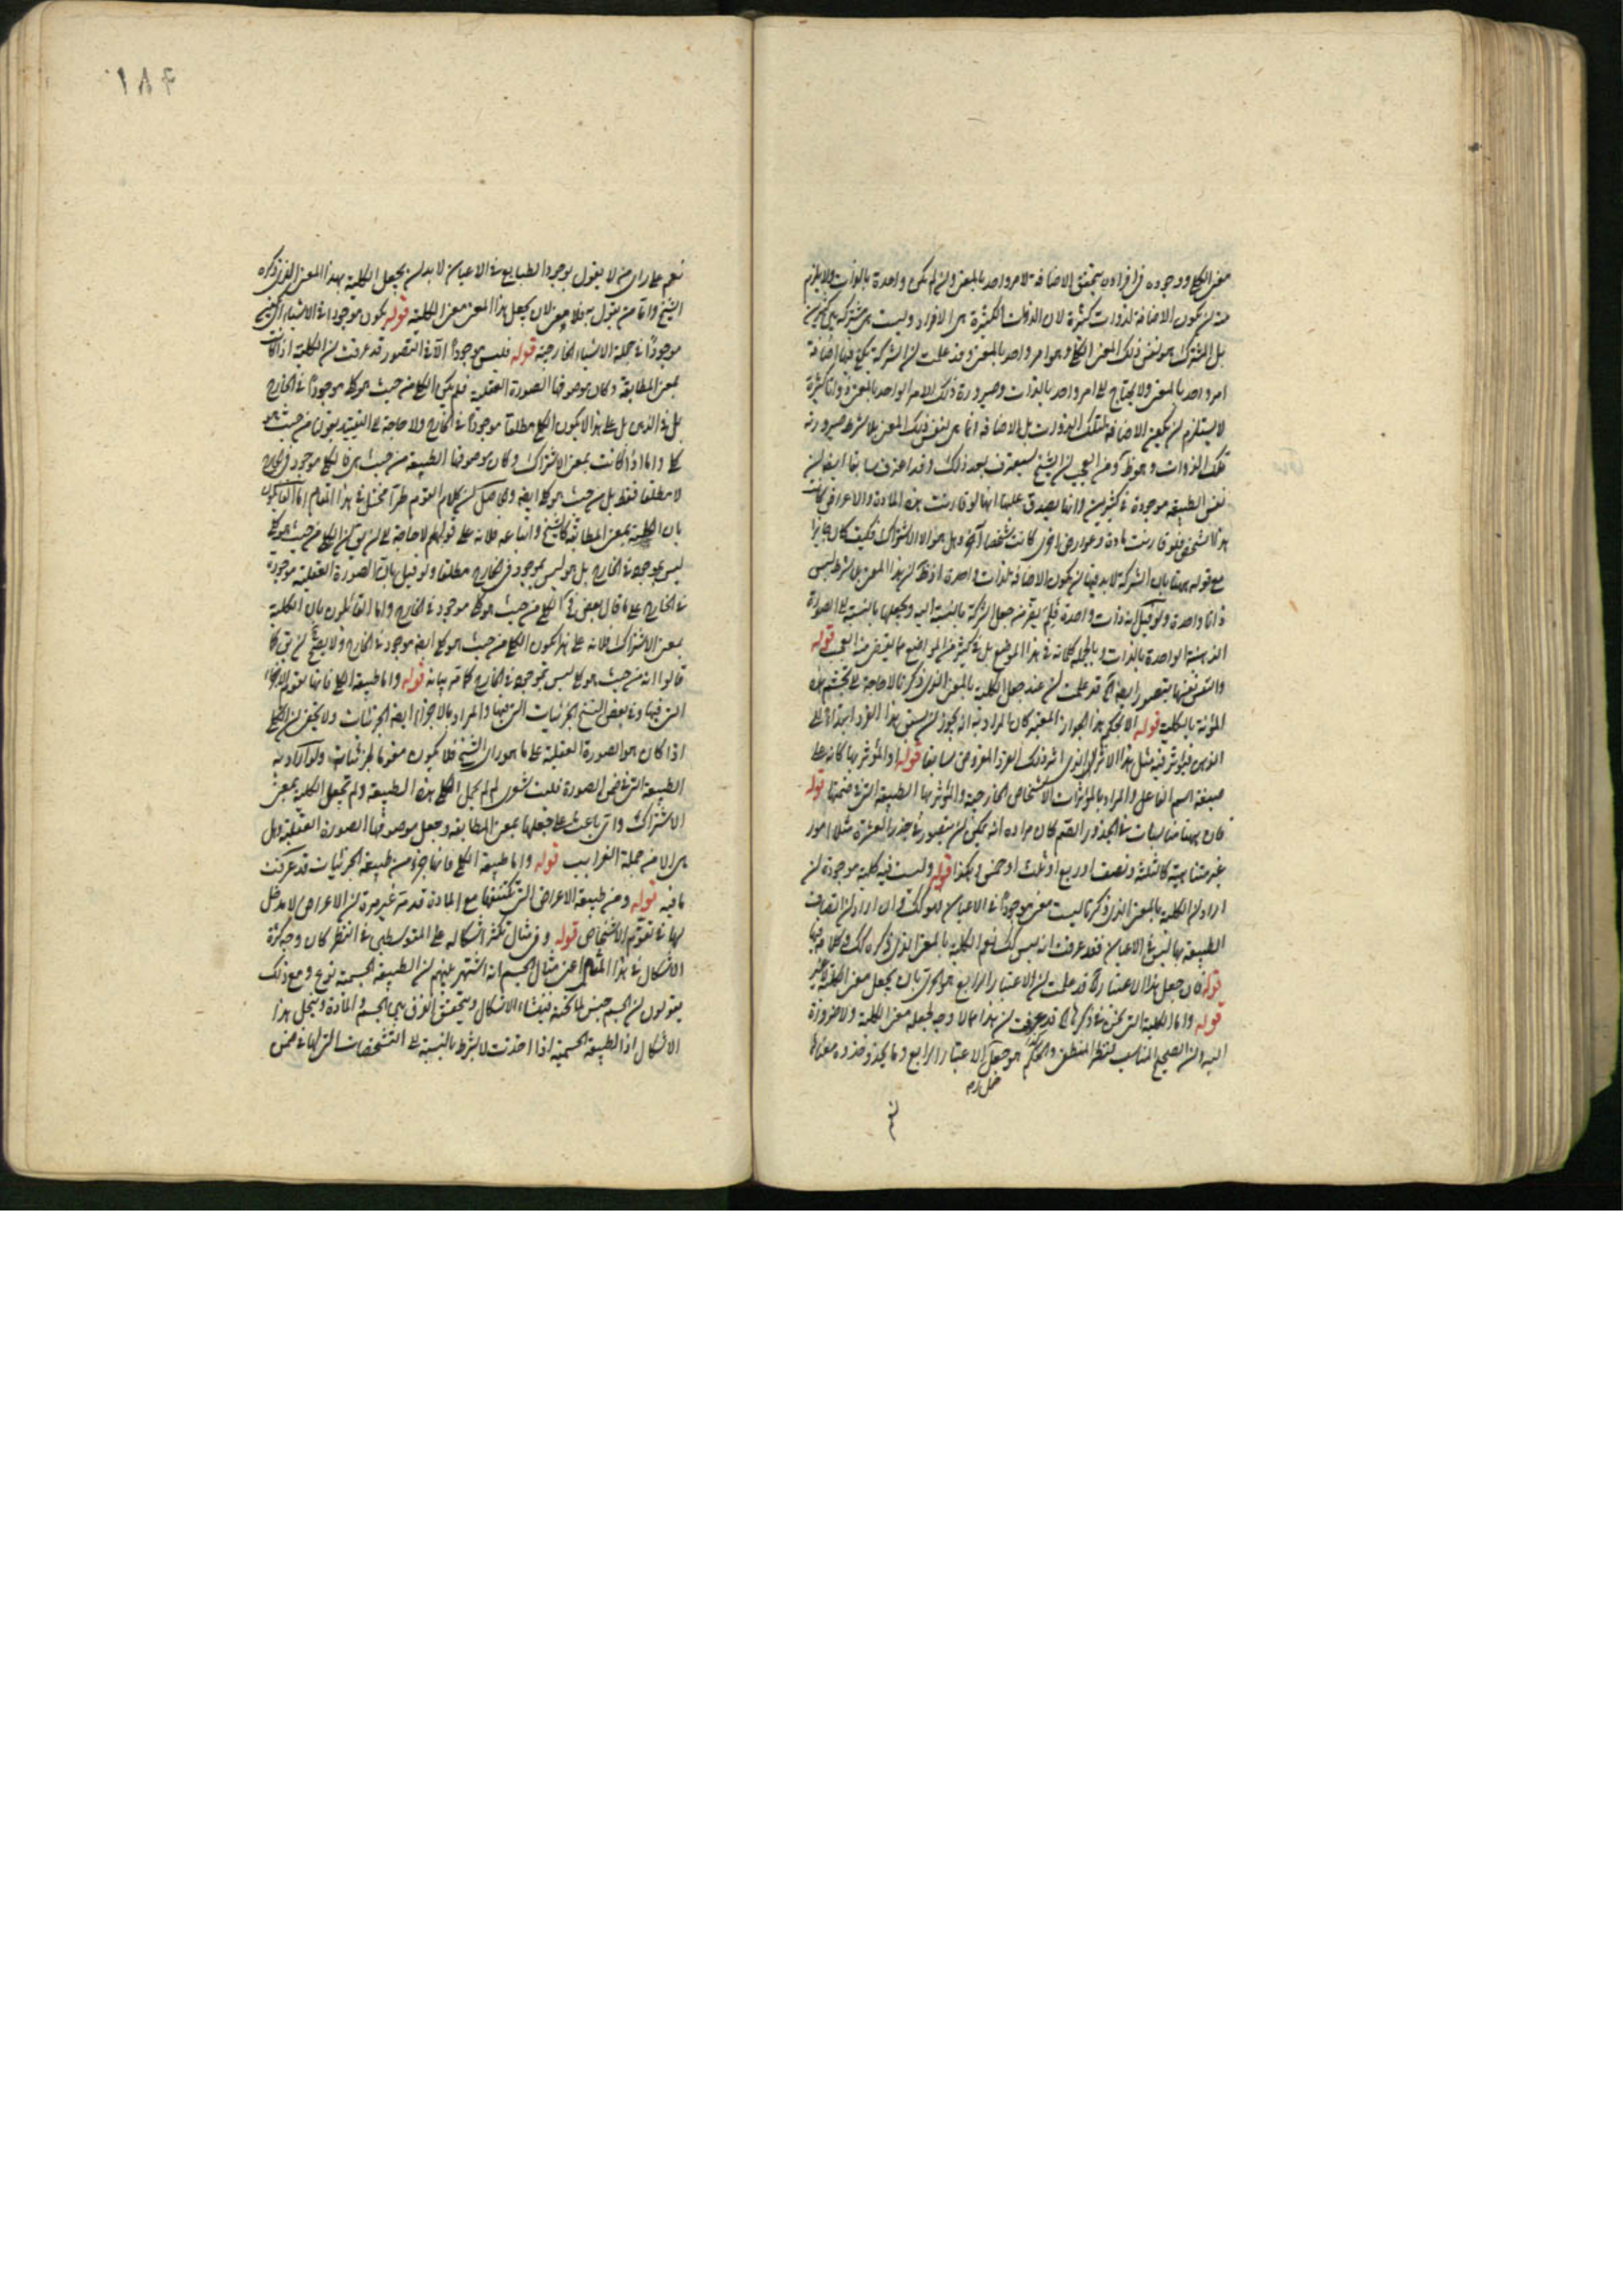 معنى الكلي ووجوده في افراده يتحقق الاضافة لامر واحد بالمعنى وان لم تكن واحدة بالذات ولا يلزم
منه ان يكون الاضافة لذوات كثيرة لان الذوات الكثيرة هي الافراد وليست هي مشتركة بين كثيرين
بل المشترك هو نفس ذلك المعنى الكلي وهو امر واحد بالمعنى وقد علمت ان الشركة يكفي فيها اضافة
امر واحد بالمعنى ولا يحتاج الى امر واحد بالذات وصيرورة ذلك الامر الواحد بالمعنى ذواتا كثيرة
لا يستلزم ان يكون الاضافة لتلك الذوات بل الاضافة انما هي لنفس ذلك المعنى بلا شرط صيرورته
تلك الذوات وهو ظ ومن العجب ان الشيخ سيعترف بعد ذلك وقد اعترف سابقا ايضا بان
نفس الطبيعة موجودة في كثيرين وانها يصدق عليها انها لو قارنت هذه المادة والاعراض كانت
هذا الشخص ولو قارنت مادة وعوارض اخرى كانت شخصا آخر وهل هو الا الاشتراك فكيف كان
مع قوله ههنا بان الشركة لا بد فيها ان يكون الاضافة لذات واحدة اذ ظ ان هذا المعنى بلا شرط ليس
ذاتا واحدة ولو قيل انه ذات واحدة فلم يفر من جعل الشركة بالنسبة اليه ويجعلها بالنسبة الى الصورة
الذهنية الواحدة بالذات وبالجملة كلامه في هذا الموضع بل في كثير من المواضع مما يقضى منه العجب قوله
والنفس نفسها يتصور ايضا آه قد علمت ان عند جعل الكلية بالمعنى الذي ذكرنا لا حاجة الى تجشم هذه
المؤنة بالكلية قوله الا بحكم هذا الجواز المعتبر كان المراد به انه يجوز ان يسبق هذا الفرد ابتداء الى
الذهن فيؤثر فيه مثل هذا الاثر الذي اثر ذلك الفرد المفروض سابقا قوله والمؤثر بها كانه على
صيغة اسم الفاعل والمراد بالمؤثرات الاشخاص الخارجية والمؤثر بها الطبيعة التي في ضمنها قوله
فان ههنا مناسبات في الجذور الصم كان مراده انه يمكن ان يتصور في جذر العشرة مثلا امور
غير متناهية كالثلثة ونصف او ربع او ثلث او خمس وهكذا قوله وليست فيه كلية موجودة ان
اراد ان الكلية بالمعنى الذي ذكرنا ليست معنى موجودا في الاعيان فهو كذلك وان اراد ان اتصاف
الطبيعة بها ليس في الاعيان فقد عرفت انه ليس كذلك نعم الكلية بالمعنى الذي ذكره كذلك
قوله فان جعل هذا الاعتبار آه قد علمت ان الاعتبار الرابع هو الحري بان يجعل معنى الكلية
قوله واما الكلية التي نحن في ذكرها آه قد عرفت ان هذا مما لا وجه لجعله معنى الكلية ولا ضرورة
اليه وان الصحيح المناسب لنظر المنطق والحكم هو جعل الاعتبار الرابع وما يحذو حذوه معناها
نعم
نعم على راي من لا يقول بوجود الطبايع في الاعيان لا بد ان يجعل الكلية بهذا المعنى الذي ذكره
الشيخ واما من يقول به فلا معنى لان يجعل هذا المعنى معنى الكلية قوله يكون موجودا في الاشياء
موجودا في جملة الاشياء الخارجية قوله فليس موجودا الا في التصور قد عرفت ان الكلية اذا كانت
بمعنى المطابقة وكان موصوفها الصورة العقلية فلم يكن الكلي من حيث هو كلي موجودا في الخارج
بل في الذهن بل على هذا لا يكون الكلي مطلقا موجودا في الخارج ولا حاجة الى التقييد بقولنا من حيث هو
كلي واما اذا كانت بمعنى الاشتراك وكان موصوفها الطبيعة من حيث هي فالكلي موجود في الخارج
لا مطلقا فقط بل من حيث هو كلي ايضا والحاصل ان كلام القوم طرا مختل في هذا المقام اما القائلون
بان الكلية بمعنى المطابقة كالشيخ واتباعه فلانه على قولهم لا حاجة الى ان يق ان الكلي من حيث هو كلي
ليس بموجود في الخارج بل هو ليس بموجود في الخارج مطلقا ولو قيل بان الصورة العقلية موجودة
في الخارج على ما قال بعض فالكلي من حيث هو كلي موجود في الخارج واما القائلون بان الكلية
بمعنى الاشتراك فلانه على هذا يكون الكلي من حيث هو كلي ايضا موجودا في الخارج ولا يصح ان يق كما
قالوا انه من حيث هو كلي ليس بموجود في الخارج كما مر بيانه قوله واما طبيعة الكلي فانها تقوم الاجزاء
التي فيها وفي بعض النسخ الجزئيات التي فيها والمراد بالاجزاء ايضا الجزئيات ولا يخفى ان الكلي
اذا كان هو الصورة العقلية على ما هو راي الشيخ فلا يكون مقوما للجزئيات ولو اراد به
الطبيعة التي في ضمن الصورة فليت شعري لم لم يجعل الكلي هذه الطبيعة ولم تجعل الكلية بمعنى
الاشتراك واي باعث على جعلها بمعنى المطابقة وجعل موصوفها الصورة العقلية وهل
هي الا من جملة الغرايب قوله واما طبيعة الكلي فانها جزء من طبيعة الجزئيات قد عرفت
ما فيه قوله ومن طبيعة الاعراض التي تكتنفها مع المادة قد مر غير مرة ان الاعراض لا مدخل
لها في تقوم الاشخاص قوله وفي مثال تكثر اشكاله على المتوسطين في النظر كان وجه كثرة
الاشكال في هذا المثال اعني مثال الجسم انه اشتهر بينهم ان الطبيعة الجسمية نوع ومع ذلك
يقولون ان الجسم جنس لما تحته فينشاء الاشكال وبتحقق الفرق بين الجسم والمادة وينحل هذا
الاشكال اذ الطبيعة الجسمية اذا اخذت لا بشرط بالنسبة الى التشخصات التي لها في ضمن